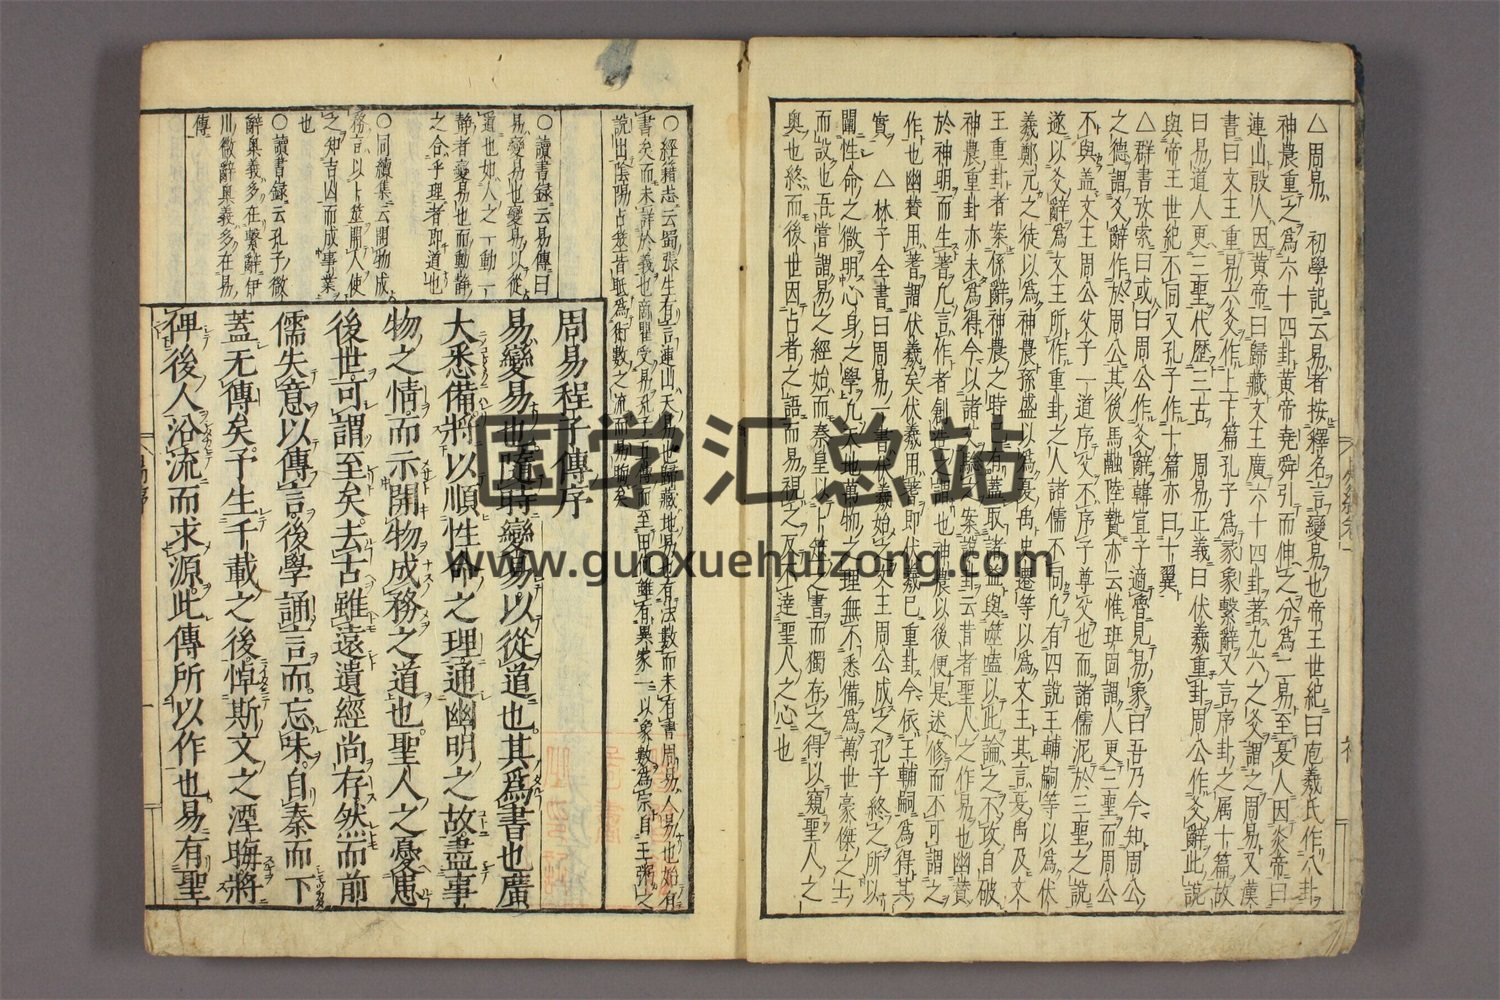 △周易 初學記云易者按釋名言變易也帝王世紀曰庖羲氏作八卦
神農重之為六十四卦黃帝堯舜引而伸之分為二易至夏人因炎帝曰
連山殷人因黃帝曰歸藏文王廣六十四卦著九六之爻謂之周易又漢
書曰文王重易六爻作上下篇孔子為彖象繫辭文言序卦之屬十篇故
曰易道人更三聖世歷三古 周易正義曰伏羲重卦周公作爻辭此說
與帝王世紀不同又孔子作十篇亦曰十翼
△群書攷索曰或曰周公作爻辭韓宣子適魯見易象曰吾乃今知周公
之德謂爻辭作於周公其後馬融陸贄亦云惟班固謂人更三聖而周公
不與蓋文王周公父子一道序父不序子尊父也而諸儒泥於三聖之說
遂以爻辭為文王所作重卦之人諸儒不同凡有四說王輔嗣等以為伏
羲鄭元之徒以為神農孫盛以為夏禹史遷等以為文王其言夏禹及文
王重卦者案係辭神農之時已有蓋取諸益與噬嗑以此論之不攻自破
神農重卦亦未為得今以諸文驗之案說卦云昔者聖人之作易也幽贊
於神明而生蓍凡言作者創造之謂也神農以後便是述修而不可謂之
作也幽贊用蓍謂伏羲矣伏羲用蓍即伏羲已重卦今依王輔嗣為得其
實 △林子全書曰周易一書伏羲始之文王周公成之孔子終之所以
闡性命之微明心身之學凡天地萬物之理無不悉備為萬世豪傑之士
而設也吾嘗謂易之經始而秦皇以卜筮之書而獨存之得以窺聖人之
奧也終而後世因占者之語而易視之反不達聖人之心也
○經籍志云蜀張生有言連山天易也歸藏地易也有法數而未有書周易人易也始有
書矣而未詳於義也商瞿受易孔子
說出陰陽占筮皆眡為術數之流而易晦矣
○讀書錄云易傳曰
易變易也變易以從
道也如人之一動一
靜者變易也而動靜
之合乎理者即道也
○同續集云開物成
務言以卜筮開人使
之知吉凶而成事業
也
○讀書錄云孔子微
辭奧義多在繫辭伊
川微辭奧義多在易
傳
周易程子傳序
易變易也隨時變易以從道也其為書也廣
大悉備將以順性命之理通幽明之故盡事
物之情而示開物成務之道也聖人之憂患
後世可謂至矣去古雖遠遺經尚存然而前
儒失意以傳言後學誦言而忘味自秦而下
蓋无傳矣予生千載之後悼斯文之湮晦將
俾後人沿流而求源此傳所以作也易有聖
国学汇总站
www.guoxuehuizong.com